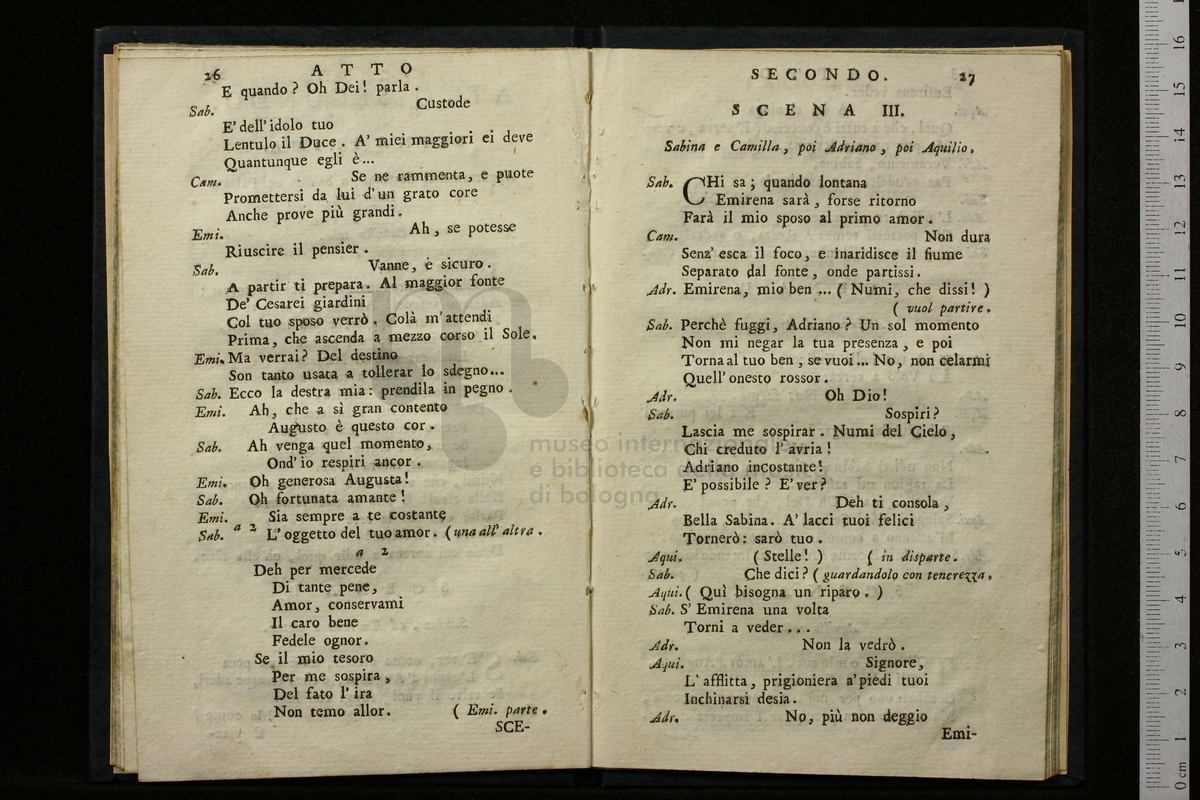 26 ATTO
E quando? Oh Dei! parla.
Sab. Custode
E' dell' idolo tuo
Lentulo il Duce. A' miei maggiori ei deve
Quantunque egli è...
Cam. Se ne rammenta, e puote
Promettersi da lui d'un grato core
Anche prove più grandi.
Emi. Ah, se potesse
Riuscire il pensier.
Sab. Vanne, è sicuro.
A partir ti prepara. Al maggior fonte
De' Cesarei giardini
Col tuo sposo verrò. Colà m'attendi
Prima, che ascenda a mezzo corso il Sole.
Emi. Ma verrai? Del destino
Son tanto usata a tollerar lo sdegno...
Sab. Ecco la destra mia: prendila in pegno.
Emi. Ah, che a sì gran contento
Augusto è questo cor.
Sab. Ah venga quel momento,
Ond' io respiri ancor.
Emi. Oh generosa Augusta!
Sab. Oh fortunata amante!
Emi. Sia sempre a te costante
Sab. a 2 L' oggetto del tuo amor. (una all' altra.
a 2
Deh per mercede
Di tante pene,
Amor, conservami
Il caro bene
Fedele ognor.
Se il mio tesoro
Per me sospira,
Del fato l' ira
Non temo allor. (Emi. parte.
SCE-
SECONDO. 27
SCENA III.
Sabina e Camilla, poi Adriano, poi Aquilio.
Sab. CHi sa; quando lontana
Emirena sarà, forse ritorno
Farà il mio sposo al primo amor.
Cam. Non dura
Senz' esca il foco, e inaridisce il fiume
Separato dal fonte, onde partissi.
Adr. Emirena, mio ben ... (Numi, che dissi!)
(vuol partire.
Sab. Perchè fuggi, Adriano? Un sol momento
Non mi negar la tua presenza, e poi
Torna al tuo ben, se vuoi... No, non celarmi
Quell' onesto rossor.
Adr. Oh Dio!
Sab. Sospiri?
Lascia me sospirar. Numi del Cielo,
Chi creduto l' avria!
Adriano incostante!
E' possibile? E' ver?
Adr. Deh ti consola,
Bella Sabina. A' lacci tuoi felici
Tornerò: sarò tuo.
Aqui. (Stelle!) (in disparte.
Sab. Che dici? (guardandolo con tenerezza.
Aqui. (Quì bisogna un riparo.)
Sab. S' Emirena una volta
Torni a veder...
Adr. Non la vedrò.
Aqui. Signore,
L' afflitta, prigioniera a' piedi tuoi
Inchinarsi desia.
Adr. No, più non deggio
Emi-
museo internazionale
e biblioteca della musica
di bologna
0 cm 1 2 3 4 5 6 7 8 9 10 11 12 13 14 15 16